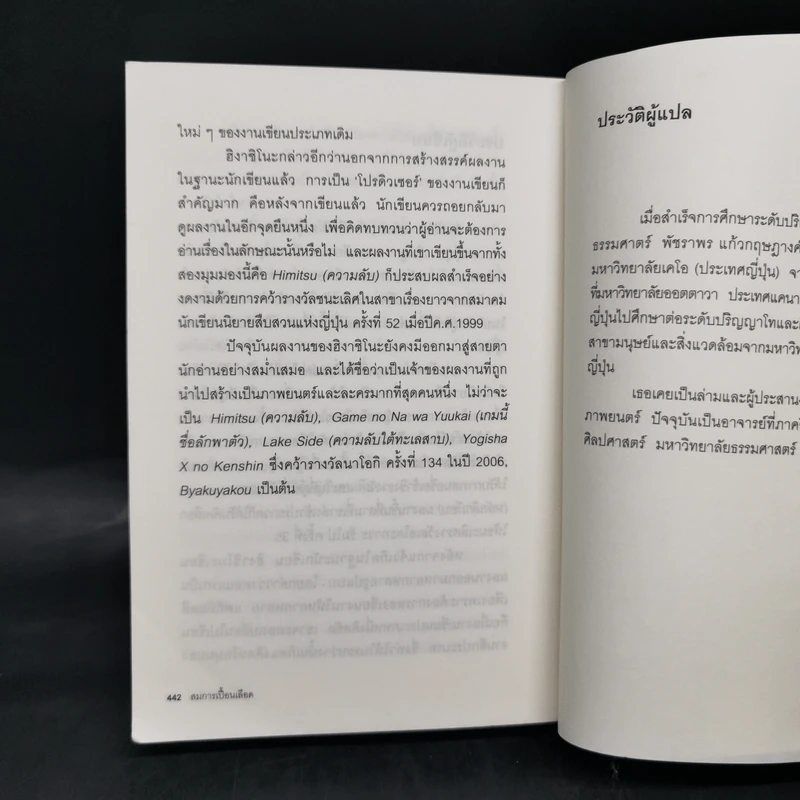 ใหม่ ๆ ของงานเขียนประเภทเดิม
ฮิงาชิโนะกล่าวอีกว่านอกจากการสร้างสรรค์ผลงาน
ในฐานะนักเขียนแล้ว การเป็น 'โปรดิวเซอร์' ของงานเขียนก็
สำคัญมาก คือหลังจากเขียนแล้ว นักเขียนควรถอยกลับมา
ดูผลงานในอีกจุดยืนหนึ่ง เพื่อคิดทบทวนว่าผู้อ่านจะต้องการ
อ่านเรื่องในลักษณะนั้นหรือไม่ และผลงานที่เขาเขียนขึ้นจากทั้ง
สองมุมมองนี้คือ Himitsu (ความลับ) ก็ประสบผลสำเร็จอย่าง
งดงามด้วยการคว้ารางวัลชนะเลิศในสาขาเรื่องยาวจากสมาคม
นักเขียนนิยายสืบสวนแห่งญี่ปุ่น ครั้งที่ 52 เมื่อปีค.ศ.1999
ปัจจุบันผลงานของฮิงาชิโนะยังคงมีออกมาสู่สายตา
นักอ่านอย่างสม่ำเสมอ และได้ชื่อว่าเป็นเจ้าของผลงานที่ถูก
นำไปสร้างเป็นภาพยนตร์และละครมากที่สุดคนหนึ่ง ไม่ว่าจะ
เป็น Himitsu (ความลับ), Game no Na wa Yuukai (เกมนี้
ชื่อลักพาตัว), Lake Side (ความลับใต้ทะเลสาบ), Yogisha
X no Kenshin ซึ่งคว้ารางวัลนาโอกิ ครั้งที่ 134 ในปี 2006,
Byakuyakou เป็นต้น
442 สมการเปื้อนเลือด
ประวัติผู้แปล
เมื่อสำเร็จการศึกษาระดับปริ
ธรรมศาตร์ พัชราพร แก้วกฤษฎางค์
มหาวิทยาลัยเคโอ (ประเทศญี่ปุ่น) จา
ที่มหาวิทยาลัยออตตาวา ประเทศแคนา
ญี่ปุ่นไปศึกษาต่อระดับปริญญาโทและ
สาขามนุษย์และสิ่งแวดล้อมจากมหาวิท
ญี่ปุ่น
เธอเคยเป็นล่ามและผู้ประสานง
ภาพยนตร์ ปัจจุบันเป็นอาจารย์ที่ภาค
ศิลปศาสตร์ มหาวิทยาลัยธรรมศาสตร์